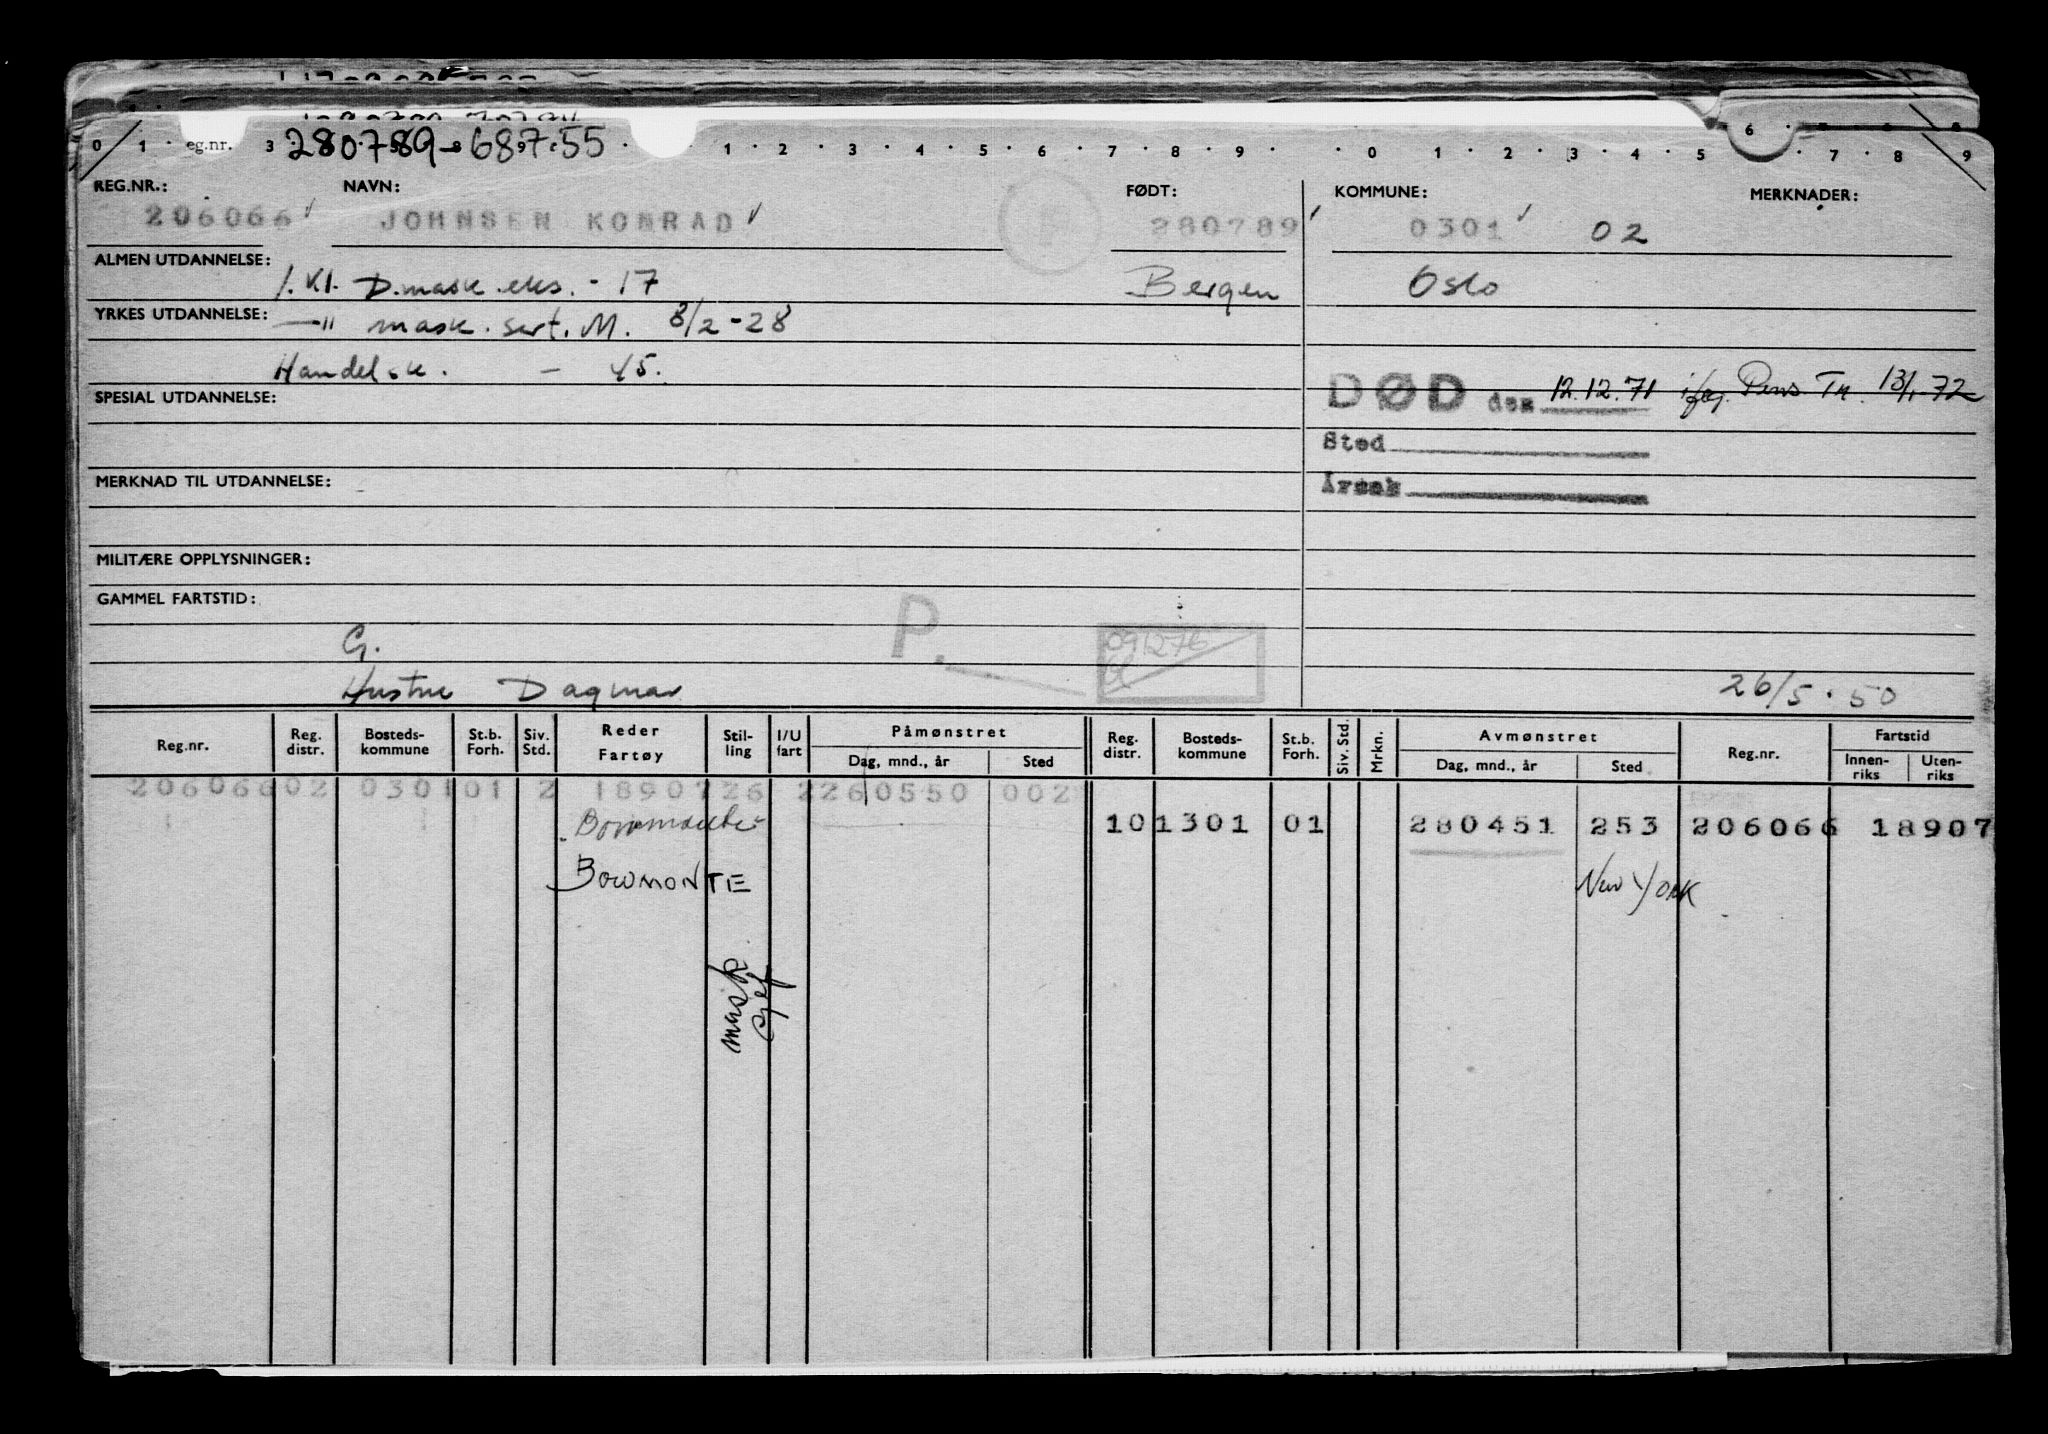 280789-68755
0 1 eg.nr. 3 1 2 3 4 5 6 7 8 9 0 1 2 3 4 5 6 7 8 9
REG.NR.: NAVN: FØDT: KOMMUNE: MERKNADER:
206066 JOHNSEN KONRAD 280789 0301 02
ALMEN UTDANNELSE: 1. Kl. D.mask.eks. - 17 Bergen Oslo
YRKES UTDANNELSE: —"— mask. sert. M. 8/2-28
Handelsk. - 45.
DØD den 12.12.71 iføg. Pens Tr. 13/1-72
SPESIAL UTDANNELSE:
Sted
MERKNAD TIL UTDANNELSE:
Årsak
MILITÆRE OPPLYSNINGER:
GAMMEL FARTSTID:
P.
G. 091276
Hustru Dagmar 26/5.50
Reg.nr. Reg. distr. Bosteds-kommune St.b. Forh. Siv. Std. Reder Fartøy Stil-ling I/U fart Påmønstret Dag, mnd., år Sted Reg. distr. Bosteds-kommune St.b. Forh. Siv. Std. Mrkn. Avmønstret Dag, mnd., år Sted Reg.nr. Fartstid Innen-riks Uten-riks
206066 02 0301 01 2 18907 26 2 260550 002
10 1301 01 280451 253 206066 18907
BOWMONTE New York
mask sjef